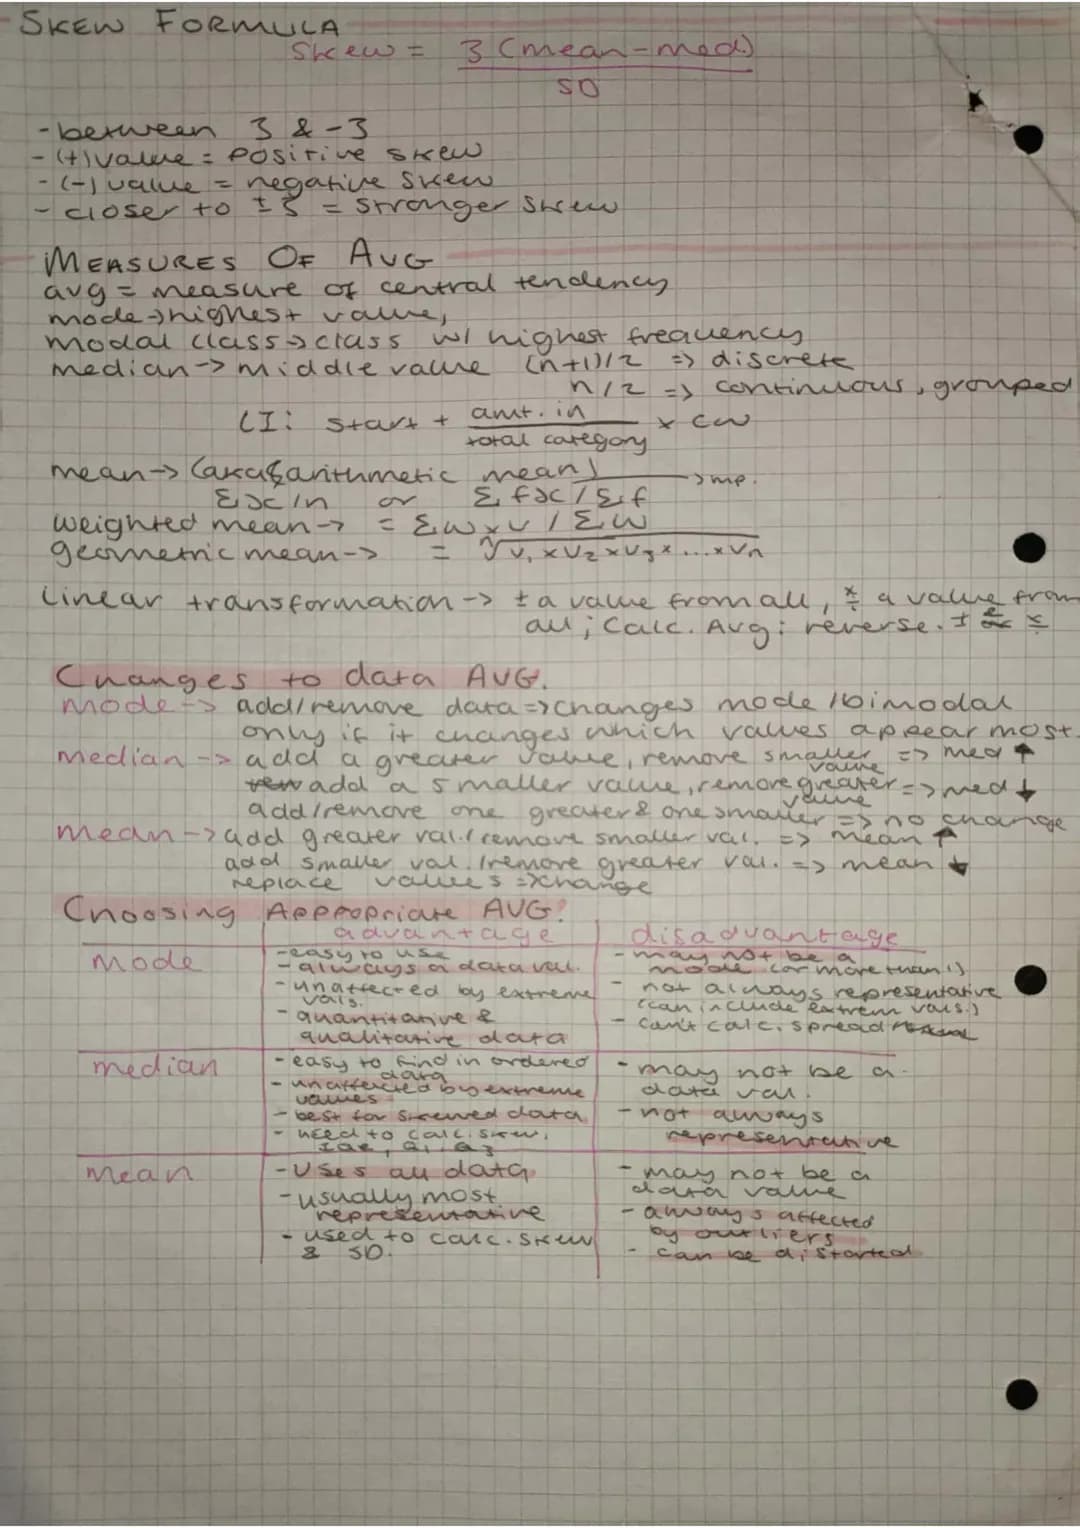 SKEW FORMULA
Skew = 3(mean-med.)
SD
- between 3 & -3
- (+) value = positive skew
- (-) value = negative skew
- closer to ±3 = stronger skew
MEASURES OF AVG
avg = measure of central tendency
mode → highest value,
modal class → class w/ highest frequency
median → middle value (n+1)/2 => discrete
n/2 => continuous, grouped
LI: start + amt. in × cw
total category
mean → (aka arithmetic mean)
Σx/n or Σfx/Σf → mp.
weighted mean → = Σw×v / Σw
geometric mean → = ⁿ√v₁×v₂×v₃×...×vₙ
Linear transformation → ± a value from all, ×/÷ a value from
all; Calc. Avg: reverse. ±
Changes to data AVG.
mode → add/remove data => changes mode / bimodal
only if it changes which values appear most.
median → add a greater value, remove smaller value => med ↑
add a smaller value, remove greater value => med ↓
add/remove one greater & one smaller => no change
mean → add greater val. / remove smaller val. => mean ↑
add smaller val. / remove greater val. => mean ↓
replace values => change
Choosing Appropriate AVG!
advantage disadvantage
mode
- easy to use
- always a data val.
- unaffected by extreme
vals.
- quantitative &
qualitative data
- may not be a
mode (or more than 1)
- not always representative
(can include extrem vals.)
- can't calc. spread
median
- easy to find in ordered
data
- unaffected by extreme
values
- best for skewed data
- need to calc. skew,
IQR, Q₁, Q₃
- may not be a
data val.
- not always
representative
mean
- uses all data
- usually most
representative
- used to calc. skew
& SD.
- may not be a
data value
- always affected
by outliers
- can be distorted